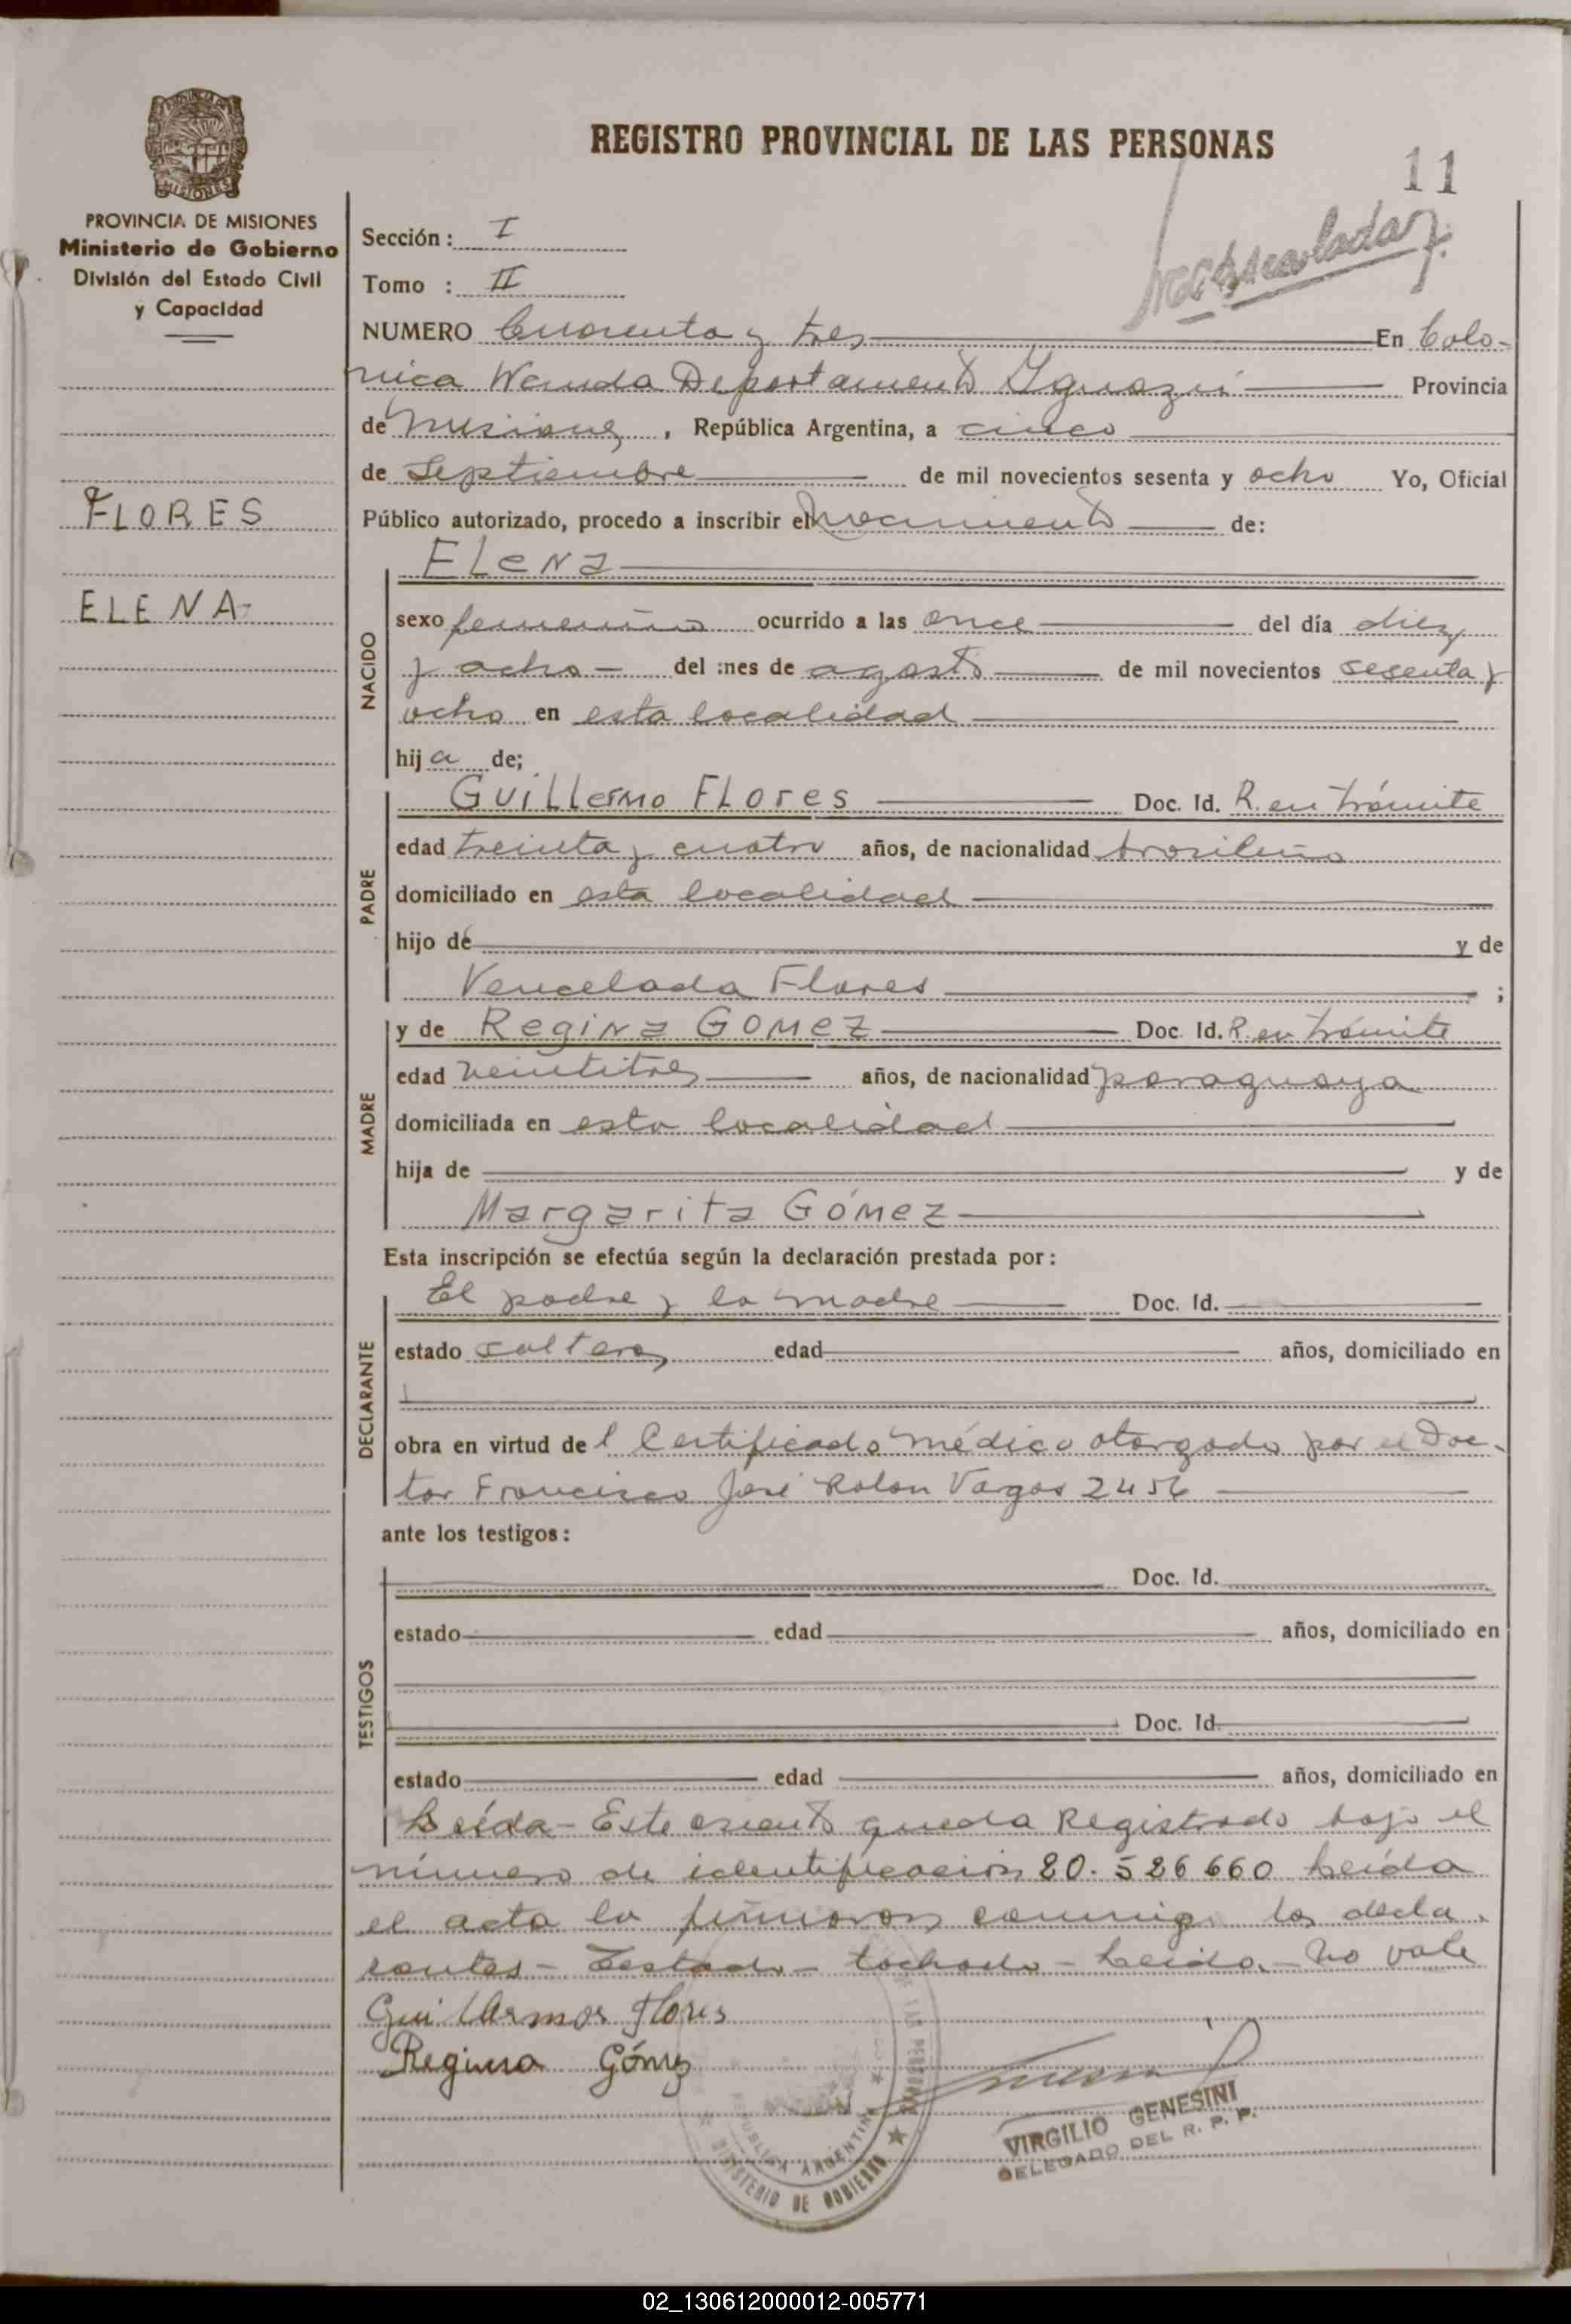 REGISTRO PROVINCIAL DE LAS PERSONAS
11
PROVINCIA DE MISIONES
Ministerio de Gobierno
División del Estado Civil
y Capacidad
FLORES
ELENA
Sección: I
Tomo : II
NUMERO Cuarenta y tres En Colo-
nia Wanda Departamento Iguazú Provincia
de Misiones, República Argentina, a cinco
de Septiembre de mil novecientos sesenta y ocho Yo, Oficial
Público autorizado, procedo a inscribir el nacimiento de:
ELENA
NACIDO
sexo femenino ocurrido a las once del día diez
y ocho del mes de agosto de mil novecientos sesenta y
ocho en esta localidad
hija de;
PADRE
Guillermo Flores Doc. Id. R. en trámite
edad treinta y cuatro años, de nacionalidad brasileña
domiciliado en esta localidad
hijo de y de
Vencelada Flores ;
MADRE
y de Regina GOMEZ Doc. Id. R. en trámite
edad veintitres años, de nacionalidad paraguaya
domiciliada en esta localidad
hija de y de
Margarita Gómez
Esta inscripción se efectúa según la declaración prestada por:
DECLARANTE
El padre y la madre Doc. Id.
estado solteros edad años, domiciliado en
obra en virtud del Certificado médico otorgado por el Doc-
tor Francisco José Rolon Vargas 2456
ante los testigos:
TESTIGOS
Doc. Id.
estado edad años, domiciliado en
Doc. Id.
estado edad años, domiciliado en
Leída - Este asiento queda Registrado bajo el
número de identificación 20.586660 Leída
el acta la firmaron conmigo los decla
rantes - Testado - tachado - Leida - No vale
Guillermos Flores
Regina Gómez
REPUBLICA ARGENTINA
MINISTERIO DE GOBIERNO
VIRGILIO GENESINI
DELEGADO DEL R. P. P.
02_130612000012-005771